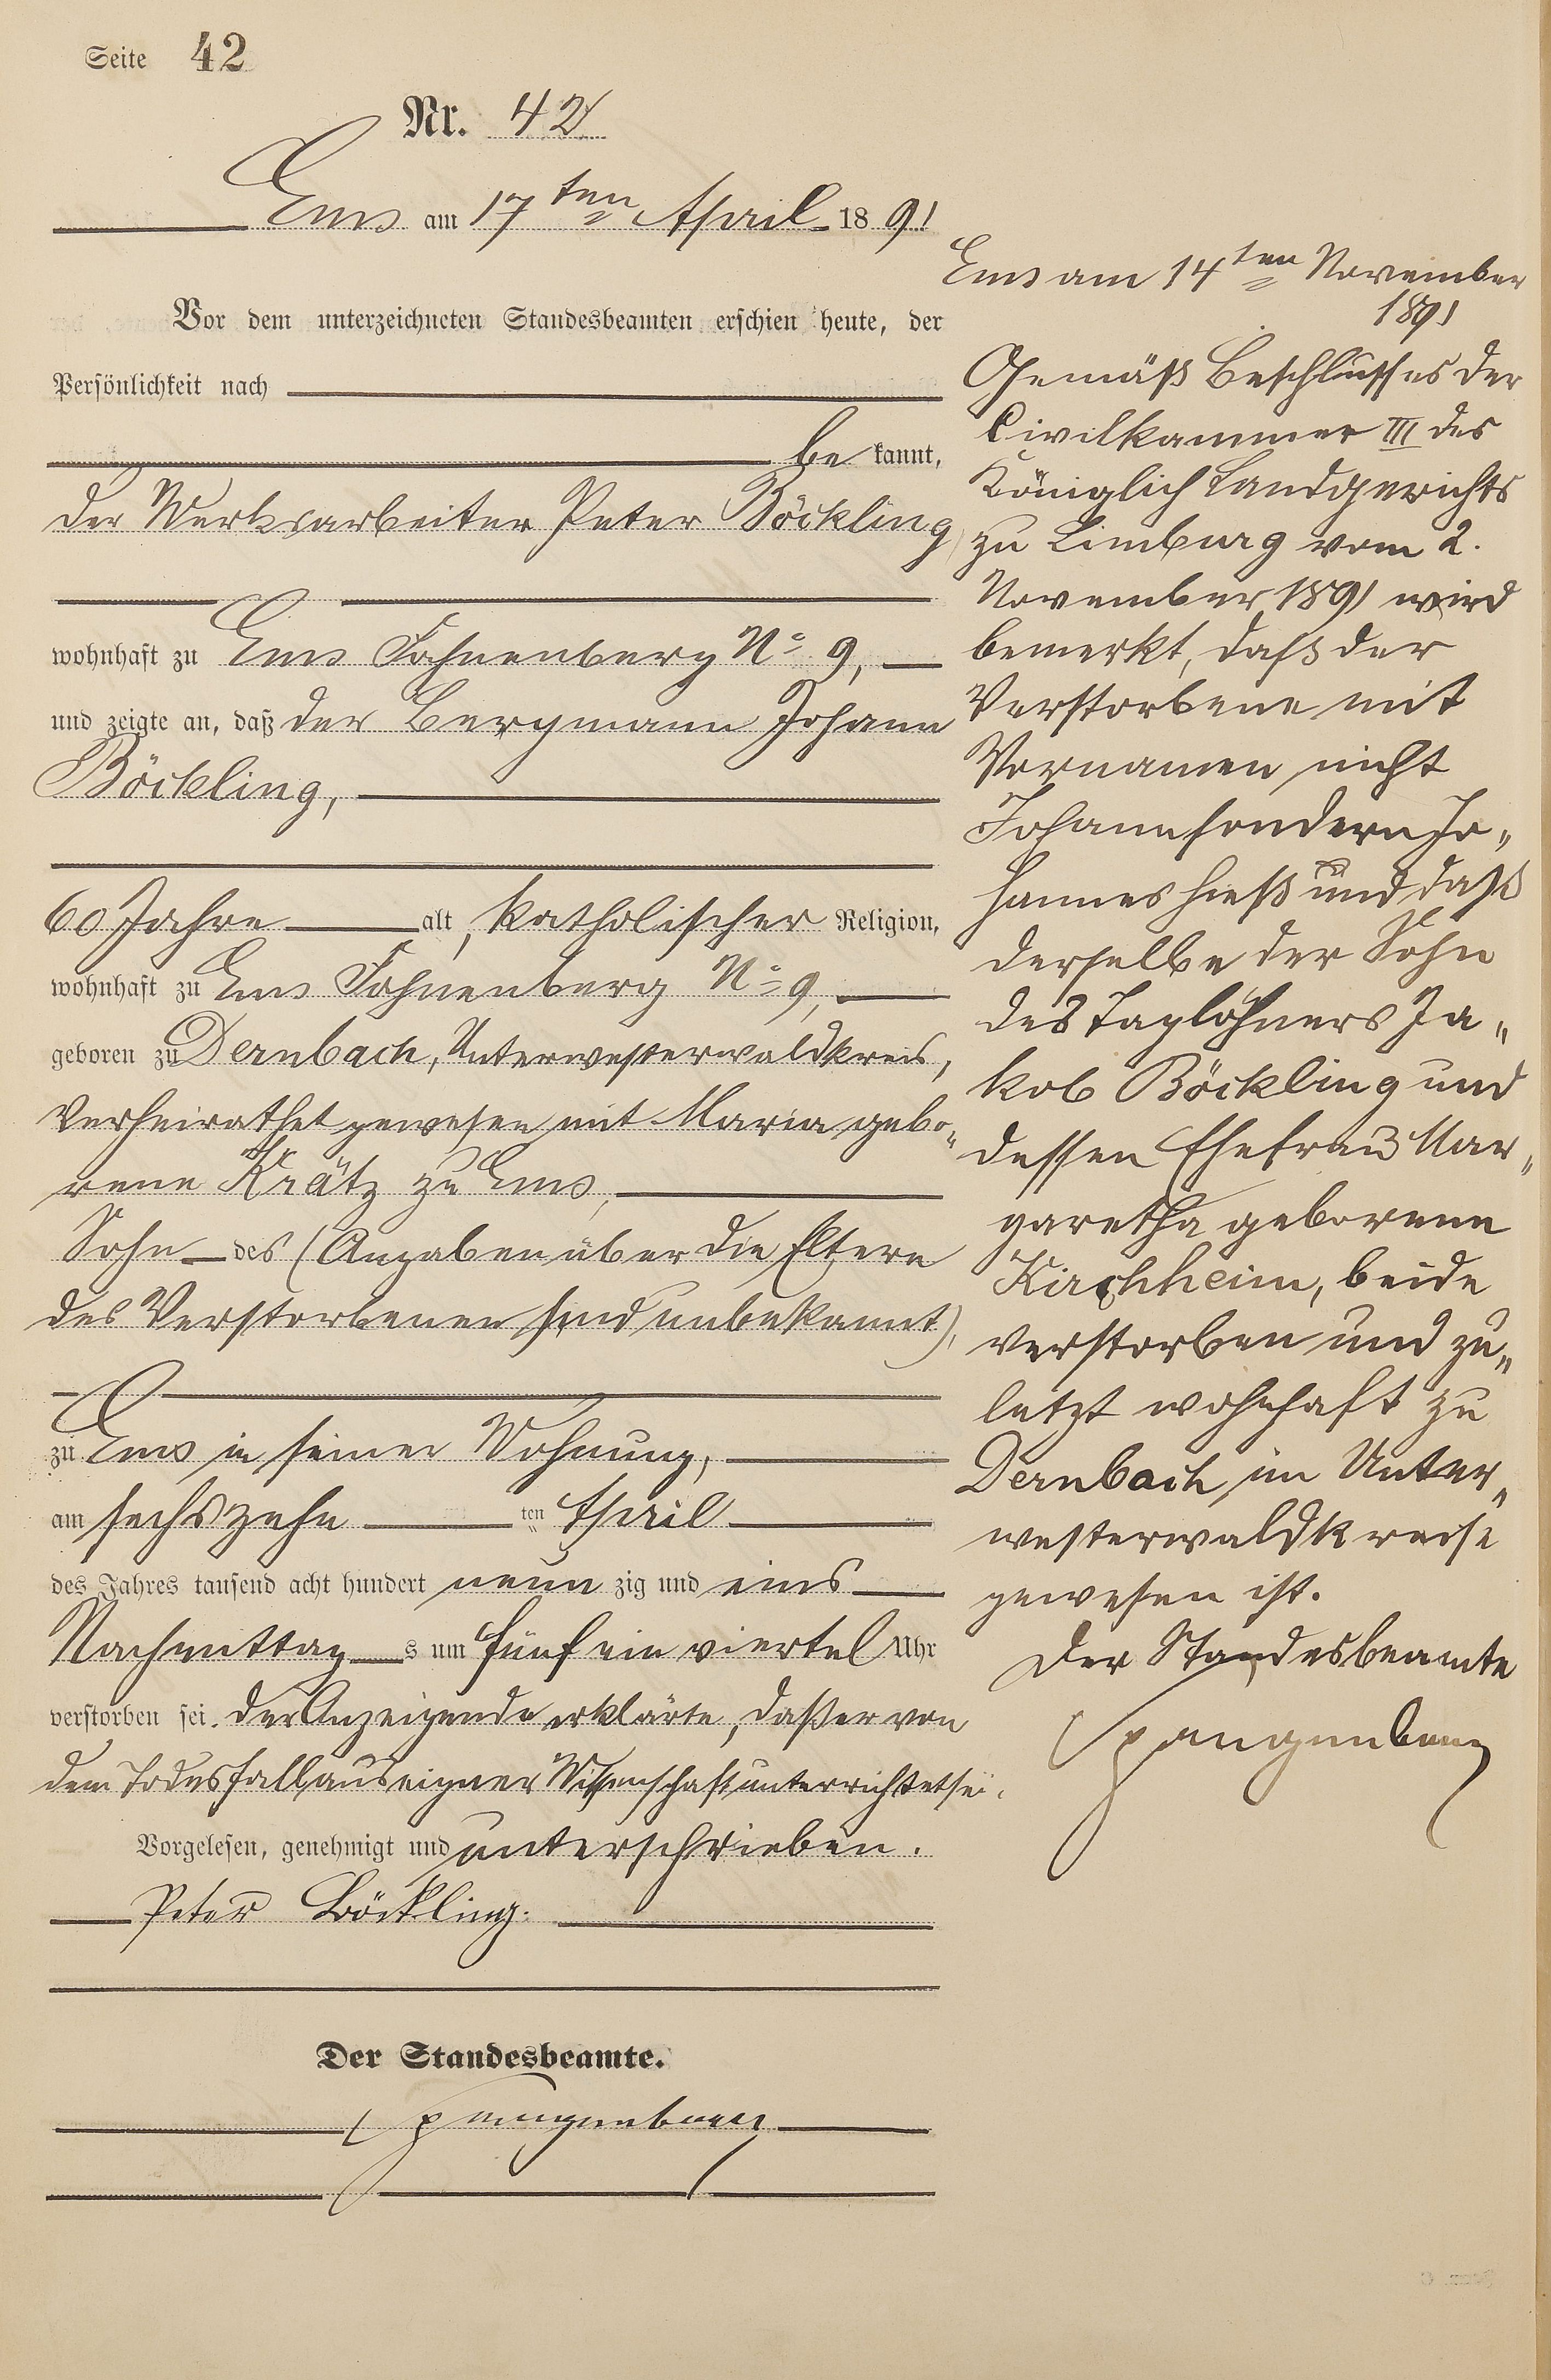 Seite 42
Nr. 42
Ems am 17ten April 1891
Vor dem unterzeichneten Standesbeamten erschien heute, der
Persönlichkeit nach
be kannt,
der Werksarbeiter Peter Böckling
wohnhaft zu Ems Fahnenberg No 9,
und zeigte an, daß der Bergmann Johann
Böckling,
60 Jahre alt, katholischer Religion,
wohnhaft zu Ems Fahnenberg No 9,
geboren zu Dernbach, Unterwesterwaldkreis,
verheirathet gewesen mit Maria gebo„
rene Krätz zu Ems,
Sohn des (Angaben über die Eltern
des Verstorbenen sind unbekannt),
zu Ems in seiner Wohnung,
am sechszehn ten April
des Jahres tausend acht hundert neun zig und eins
Nachmittag s um fünf ein viertel Uhr
verstorben sei. Der Anzeigende erklärte, daß er von
dem Todesfall aus eigner Wissenschaft unterrichtet sei.
Vorgelesen, genehmigt und unterschrieben.
Peter Böckling.
Der Standesbeamte.
Spangenberg
Ems am 14ten November
1891
Gemäß Beschlusses der
Civilkammer III des
Königlich Landgerichts
zu Limburg vom 2.
November 1891 wird
bemerkt, daß der
Verstorbene mit
Vornamen nicht
Johann sondern Jo„
hannes hieß und daß
derselbe der Sohn
des Taglöhners Ja„
kob Böckling und
dessen Ehefrau Mar„
garetha geborenen
Kirchheim, beide
verstorben und zu„
letzt wohnhaft zu
Dernbach im Unter„
westerwaldkreise
gewesen ist.
Der Standesbeamte
Spangenberg